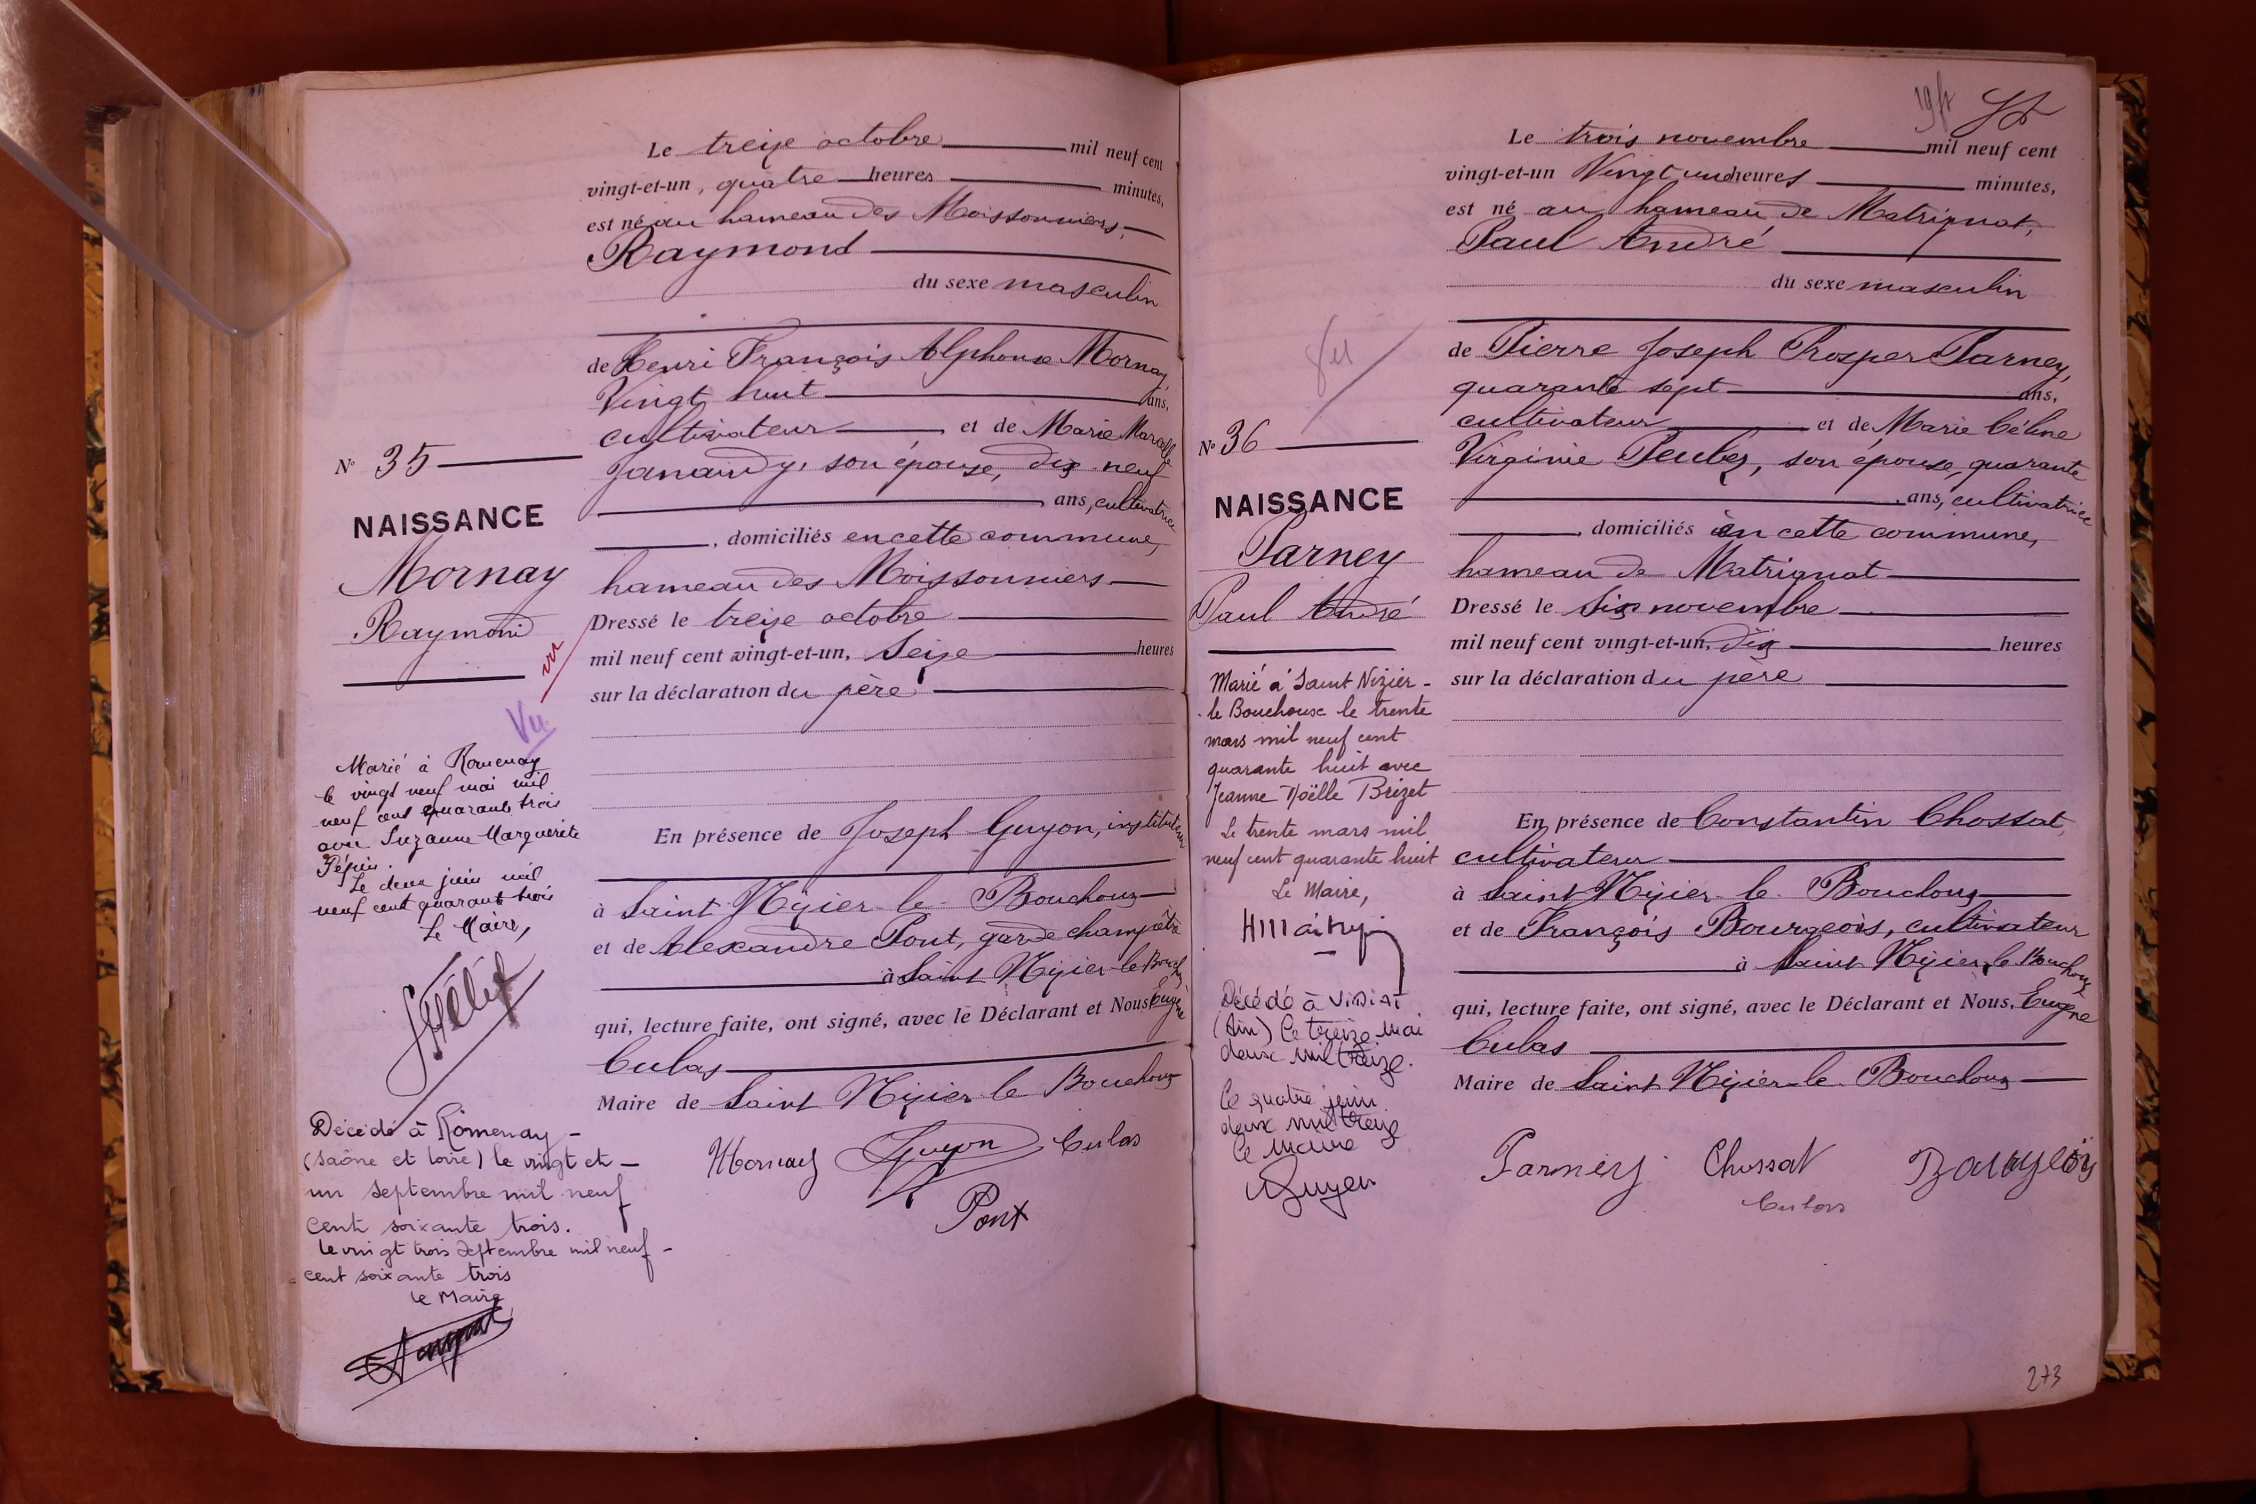 Le treize octobre mil neuf cent
vingt-et-un, quatre heures minutes,
est né au hameau des Moissonniers,
Raymond
du sexe masculin
de Henri François Alphonse Mornay,
Vingt huit ans,
cultivateur et de Marie Marcelle
Janaudy, son épouse, dix neuf
ans, cultivatrice
, domiciliés en cette commune,
hameau des Moissonniers
Dressé le treize octobre
mil neuf cent vingt-et-un, Seize heures
sur la déclaration du père
En présence de Joseph Guyon, instituteur
à Saint Nizier-le-Bouchoux
et de Alexandre Pont, garde champêtre
à Saint Nizier-le-Bouchoux
qui, lecture faite, ont signé, avec le Déclarant et Nous, Eugène
Culas
Maire de Saint Nizier-le-Bouchoux
Mornay Guyon Culas
Pont
N° 35
NAISSANCE
Mornay
Raymond
Vu
Marié à Romenay
le vingt neuf mai mil
neuf cent quarante trois
avec Suzanne Marguerite
Pépin.
Le deux juin mil
neuf cent quarante trois
Le Maire,
Décédé à Romenay -
(Saône et Loire) le vingt et -
un septembre mil neuf
cent soixante trois.
le vingt trois septembre mil neuf -
cent soixante trois
le Maire
Le trois novembre mil neuf cent
vingt-et-un Vingt une heures minutes,
est né au hameau de Matrignat,
Paul André
du sexe masculin
de Pierre Joseph Prosper Parney,
quarante sept ans,
cultivateur et de Marie Céline
Virginie Peubez, son épouse, quarante
ans, cultivatrice
, domiciliés en cette commune,
hameau de Matrignat
Dressé le Six novembre
mil neuf cent vingt-et-un, dix heures
sur la déclaration du père
En présence de Constantin Chossat,
cultivateur
à Saint Nizier-le-Bouchoux
et de François Bourgeois, cultivateur
à Saint Nizier-le-Bouchoux
qui, lecture faite, ont signé, avec le Déclarant et Nous, Eugène
Culas
Maire de Saint Nizier-le-Bouchoux
Parney Chossat Bourgeois
Culas
N° 36
NAISSANCE
Parney
Paul André
Marié à Saint Nizier-
le Bouchoux le trente
mars mil neuf cent
quarante huit avec
Jeanne Noëlle Brizet
Le trente mars mil
neuf cent quarante huit
Le Maire,
Décédé à Viriat
(Ain) le treize mai
deux mil treize.
Le quatre juin
deux mil treize
Le Maire
273